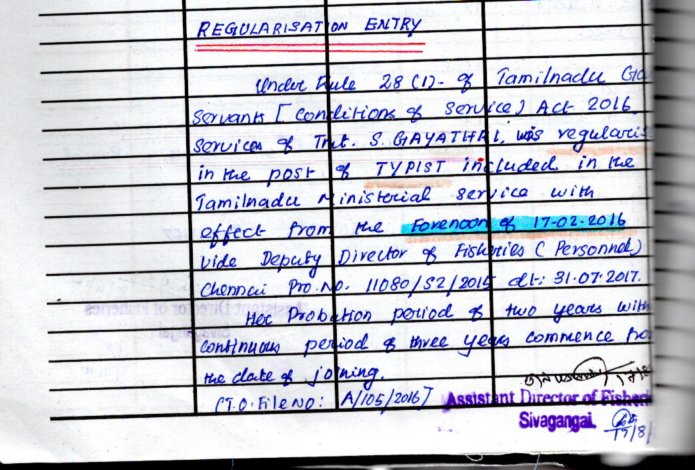 REGULARISATION ENTRY
Under Rule 28 (1)- of Tamilnadu Go
Servants [Conditions of Service] Act 2016
Services of Tmt. S. GAYATHRI, was regularis
in the post of TYPIST included in the
Tamilnadu Ministerial service with
effect from the Forenoon of 17-02-2016
vide Deputy Director of Fisheries (Personnel)
Chennai Pro.No. 11080/S2/2015 dt: 31.07.2017.
Her Probation period of two years with
continuous period of three years commence fro
the date of joining.
[T.O.File No: A/105/2016]
Assistant Director of Fisheri
Sivagangai.